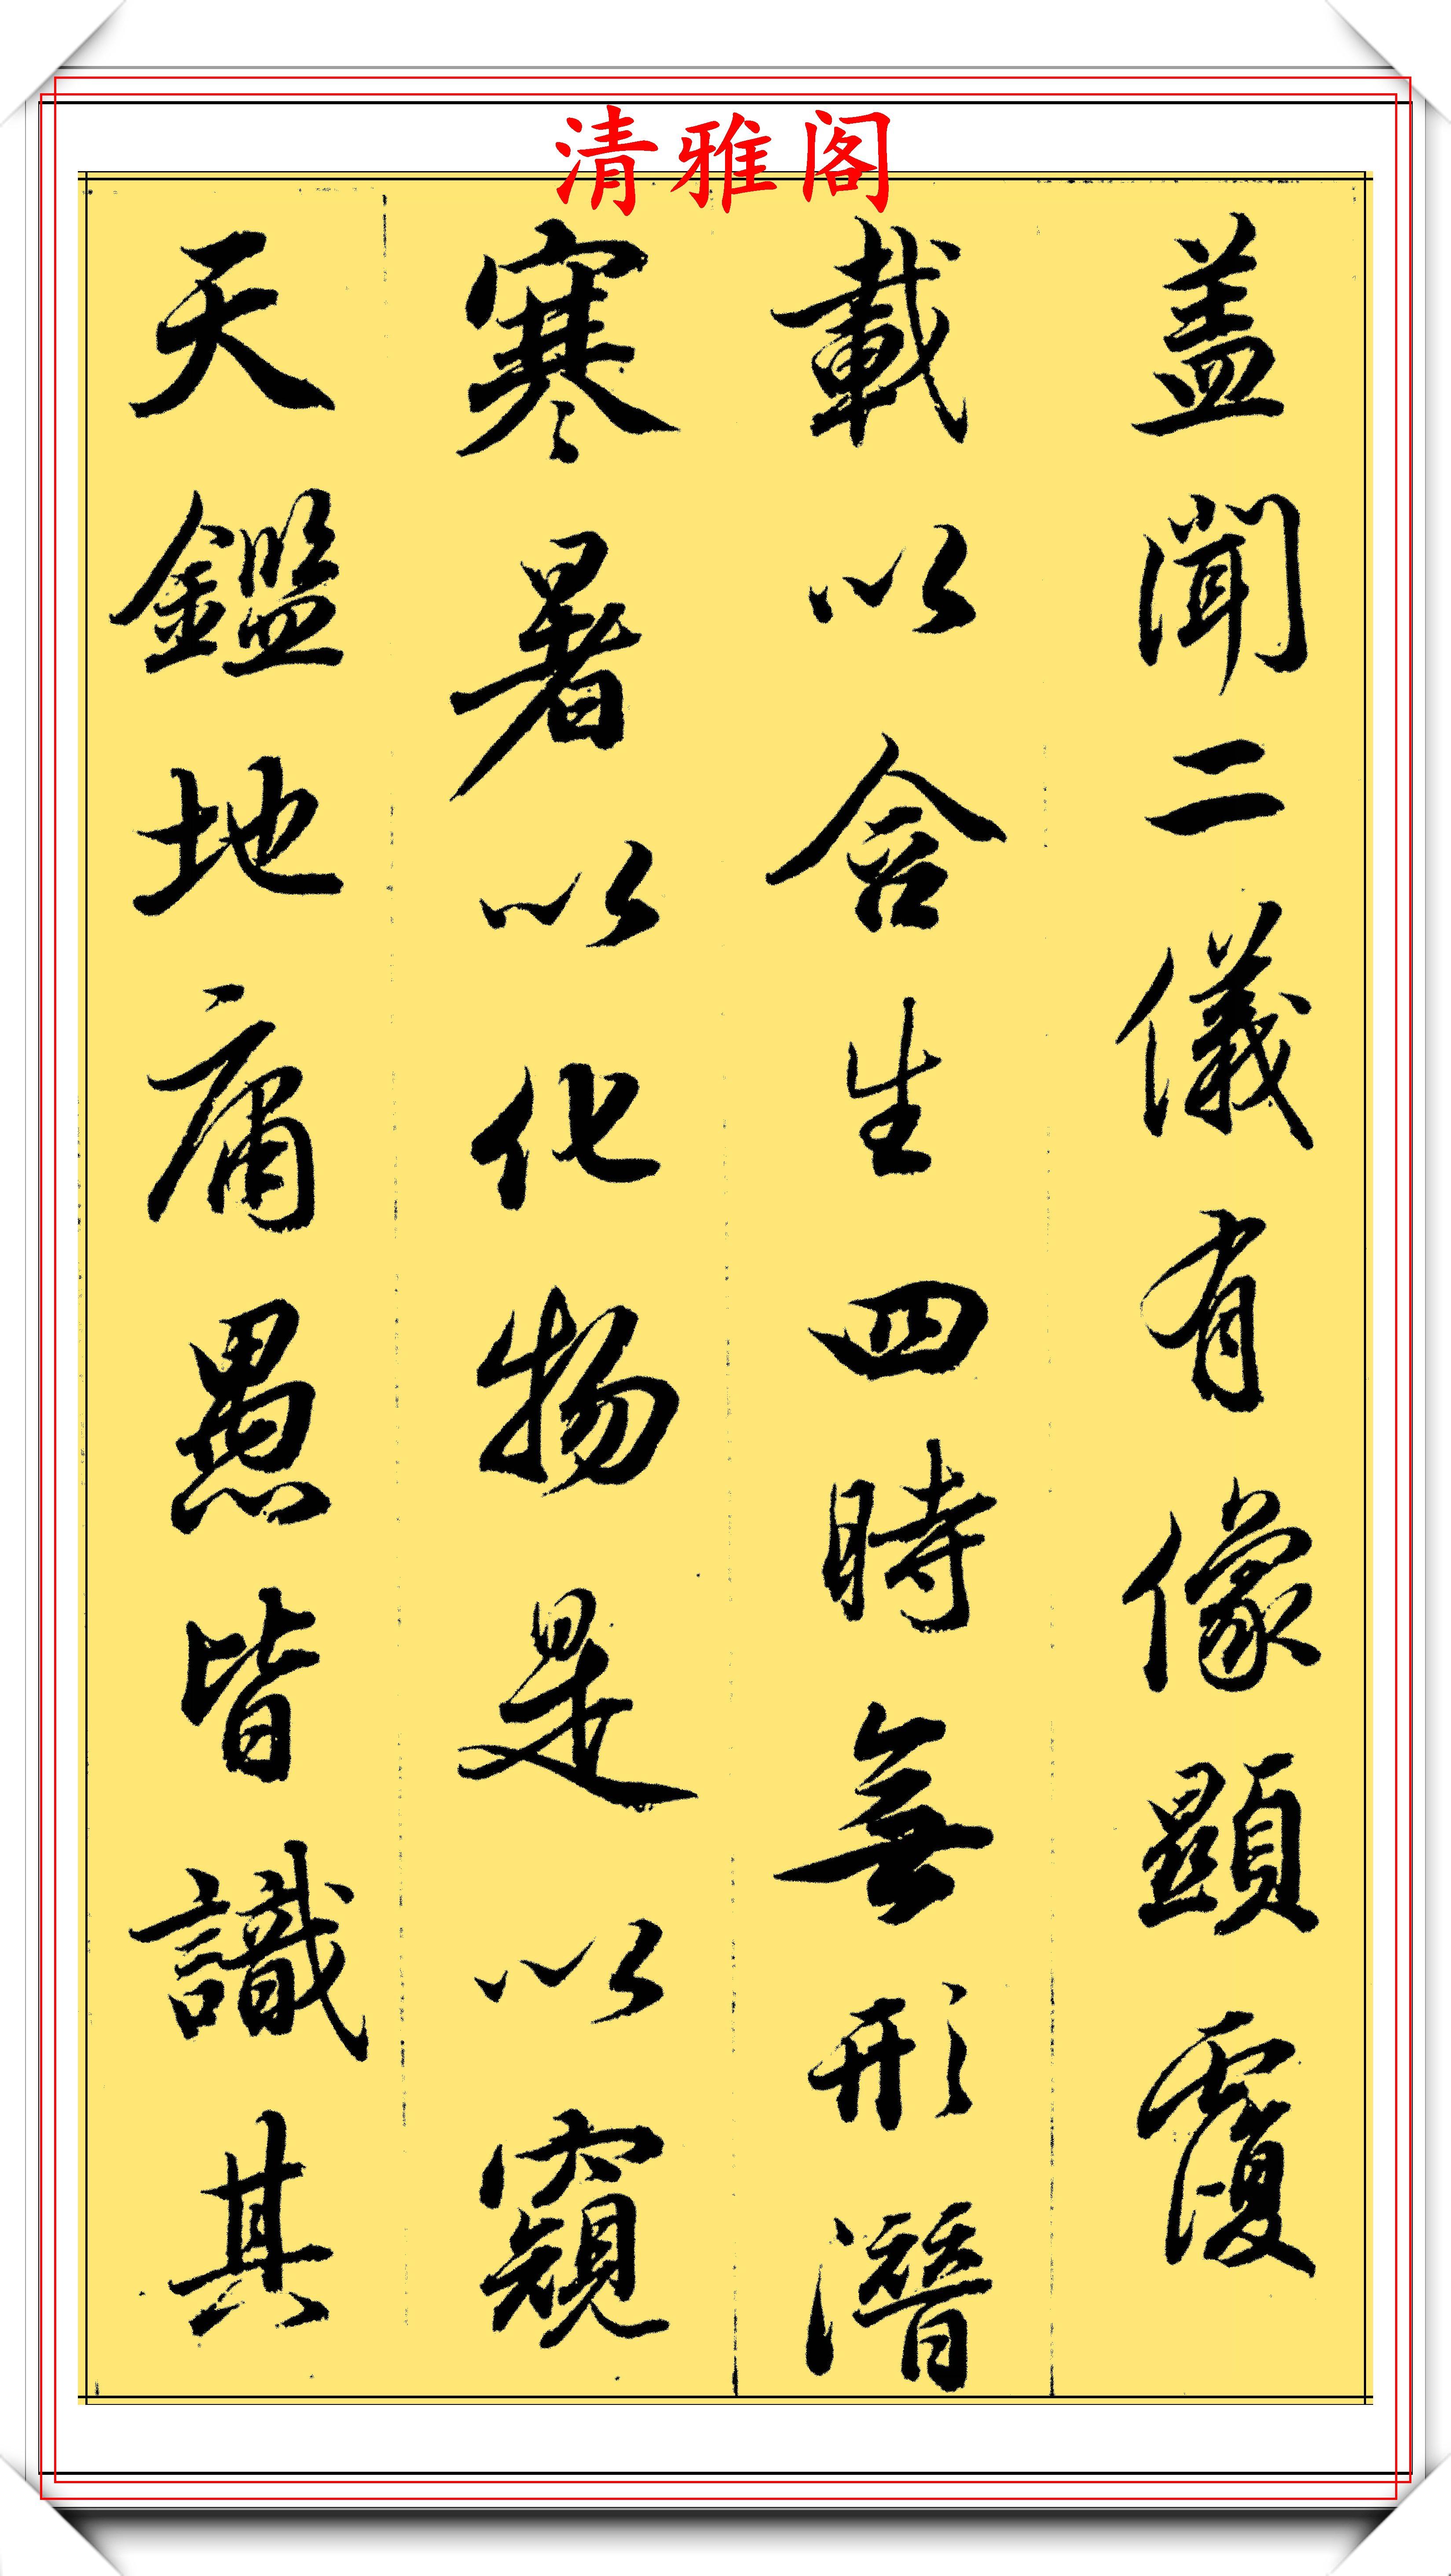 清雅阁
盖聞二儀有像顯覆
載以含生四時無形潛
寒暑以化物是以窺
天鑑地庸愚皆識其